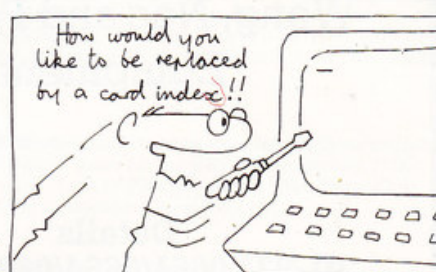 How would you
like to be replaced
by a card index!!